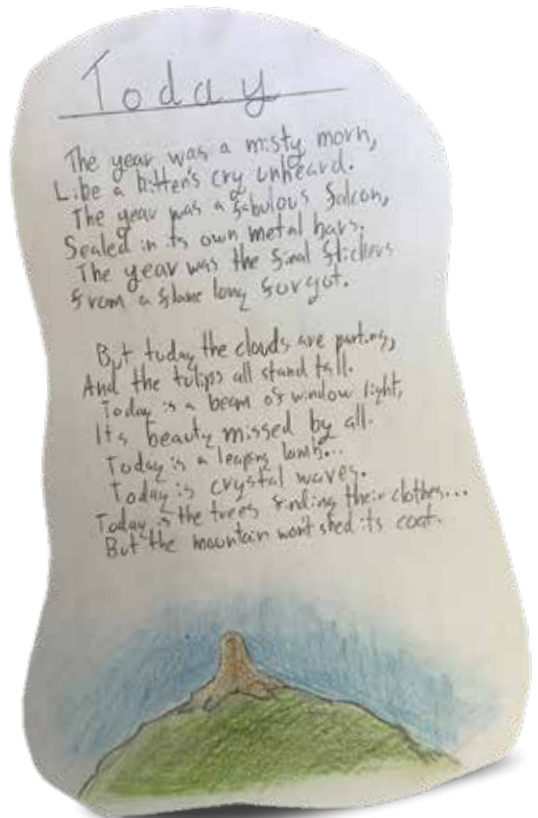 Today
The year was a misty morn,
Like a bittern's cry unheard.
The year was a fabulous falcon,
Sealed in its own metal bars.
The year was the final flickers
from a flame long forgot.
But today the clouds are parting,
And the tulips all stand tall.
Today is a beam of window light,
Its beauty missed by all.
Today is a leaping lamb...
Today is crystal waves.
Today is the trees finding their clothes...
But the mountain won't shed its coat.